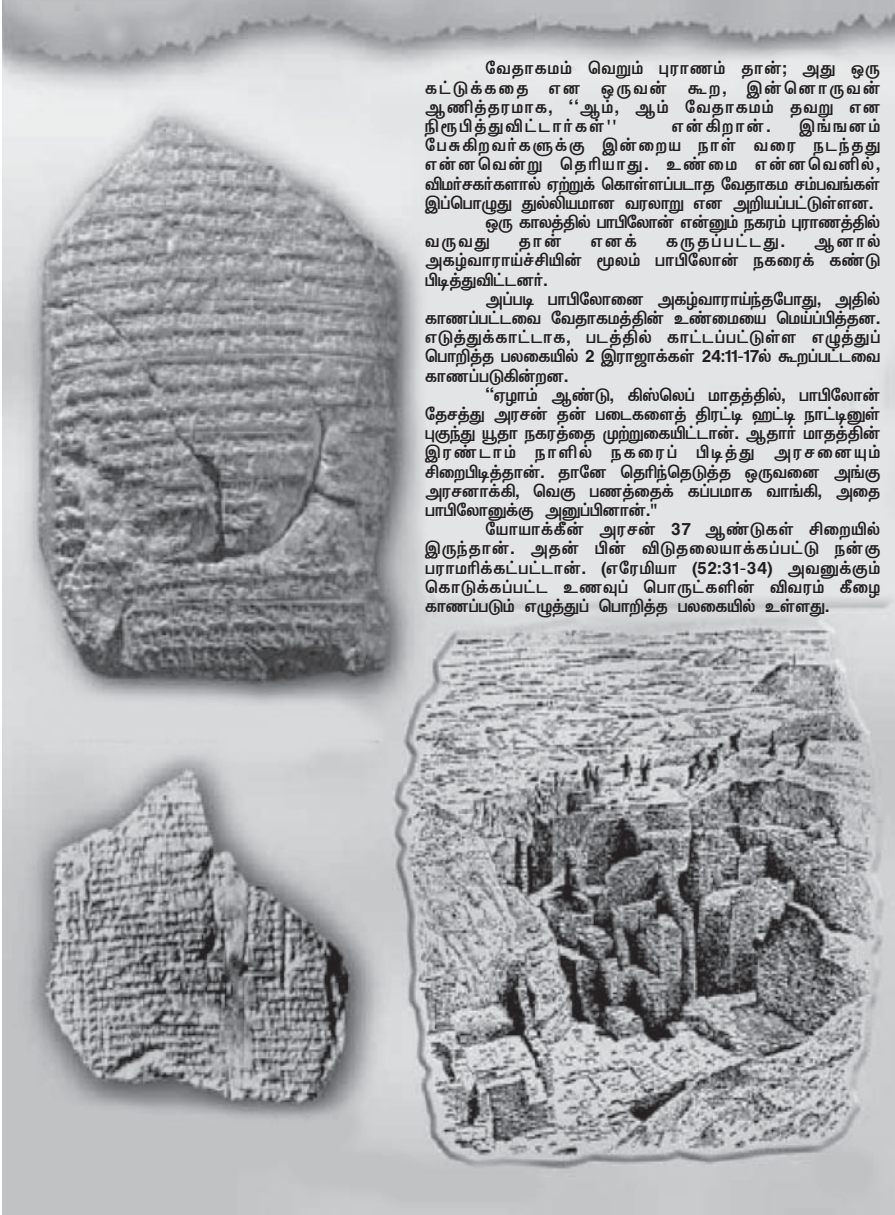 வேதாகமம் வெறும் புராணம் தான்; அது ஒரு
கட்டுக்கதை என ஒருவன் கூற, இன்னொருவன்
ஆணித்தரமாக, ‘‘ஆம், ஆம் வேதாகமம் தவறு என
நிரூபித்துவிட்டார்கள்'' என்கிறான். இங்ஙனம்
பேசுகிறவர்களுக்கு இன்றைய நாள் வரை நடந்தது
என்னவென்று தெரியாது. உண்மை என்னவெனில்,
விமர்சகர்களால் ஏற்றுக் கொள்ளப்படாத வேதாகம சம்பவங்கள்
இப்பொழுது துல்லியமான வரலாறு என அறியப்பட்டுள்ளன.
ஒரு காலத்தில் பாபிலோன் என்னும் நகரம் புராணத்தில்
வருவது தான் எனக் கருதப்பட்டது. ஆனால்
அகழ்வாராய்ச்சியின் மூலம் பாபிலோன் நகரைக் கண்டு
பிடித்துவிட்டனர்.
அப்படி பாபிலோனை அகழ்வாராய்ந்தபோது, அதில்
காணப்பட்டவை வேதாகமத்தின் உண்மையை மெய்ப்பித்தன.
எடுத்துக்காட்டாக, படத்தில் காட்டப்பட்டுள்ள எழுத்துப்
பொறித்த பலகையில் 2 இராஜாக்கள் 24:11-17ல் கூறப்பட்டவை
காணப்படுகின்றன.
“ஏழாம் ஆண்டு, கிஸ்லெப் மாதத்தில், பாபிலோன்
தேசத்து அரசன் தன் படைகளைத் திரட்டி ஹட்டி நாட்டினுள்
புகுந்து யூதா நகரத்தை முற்றுகையிட்டான். ஆதார் மாதத்தின்
இரண்டாம் நாளில் நகரைப் பிடித்து அரசனையும்
சிறைபிடித்தான். தானே தெரிந்தெடுத்த ஒருவனை அங்கு
அரசனாக்கி, வெகு பணத்தைக் கப்பமாக வாங்கி, அதை
பாபிலோனுக்கு அனுப்பினான்."
யோயாக்கீன் அரசன் 37 ஆண்டுகள் சிறையில்
இருந்தான். அதன் பின் விடுதலையாக்கப்பட்டு நன்கு
பராமரிக்கட்பட்டான். (எரேமியா (52:31-34) அவனுக்கும்
கொடுக்கப்பட்ட உணவுப் பொருட்களின் விவரம் கீழை
காணப்படும் எழுத்துப் பொறித்த பலகையில் உள்ளது.